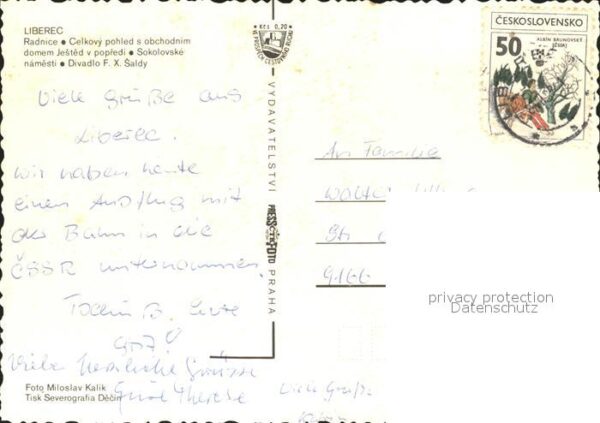 LIBEREC
Radnice ● Celkový pohled s obchodním
domem Ještěd v popředí ● Sokolovské
náměstí ● Divadlo F. X. Šaldy
Viele Grüße aus
Liberec.
Wir haben heute
einen Ausflug mit
der Bahn in die
ČSSR unternommen.
Viele herzliche Grüsse
Therese
Foto Miloslav Kalík
Tisk Severografia Děčín
Viele Grüße
Kčs 0,20
VE PROSPĚCH CESTOVNÍHO RUCHU
VYDAVATELSTVÍ PRESSFOTO PRAHA
ČESKOSLOVENSKO
50
ALBÍN BRUNOVSKÝ
An Familie
9166
privacy protection
Datenschutz